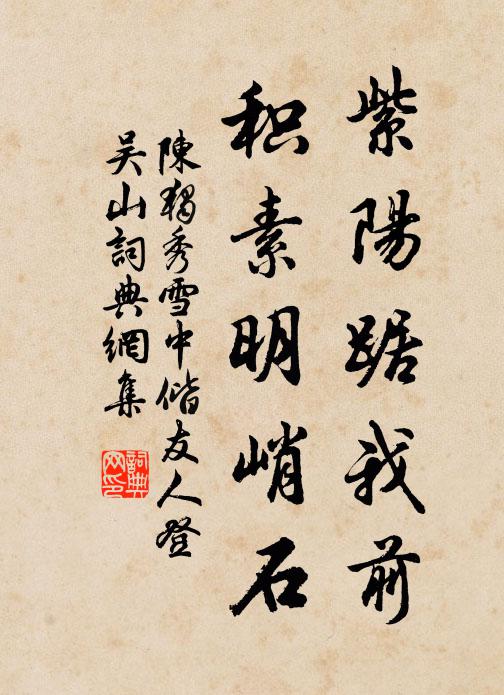 紫陽踞我前
积素明峭石
陳独秀雪中偕友人登
吴山詞典網集
詞典
网印